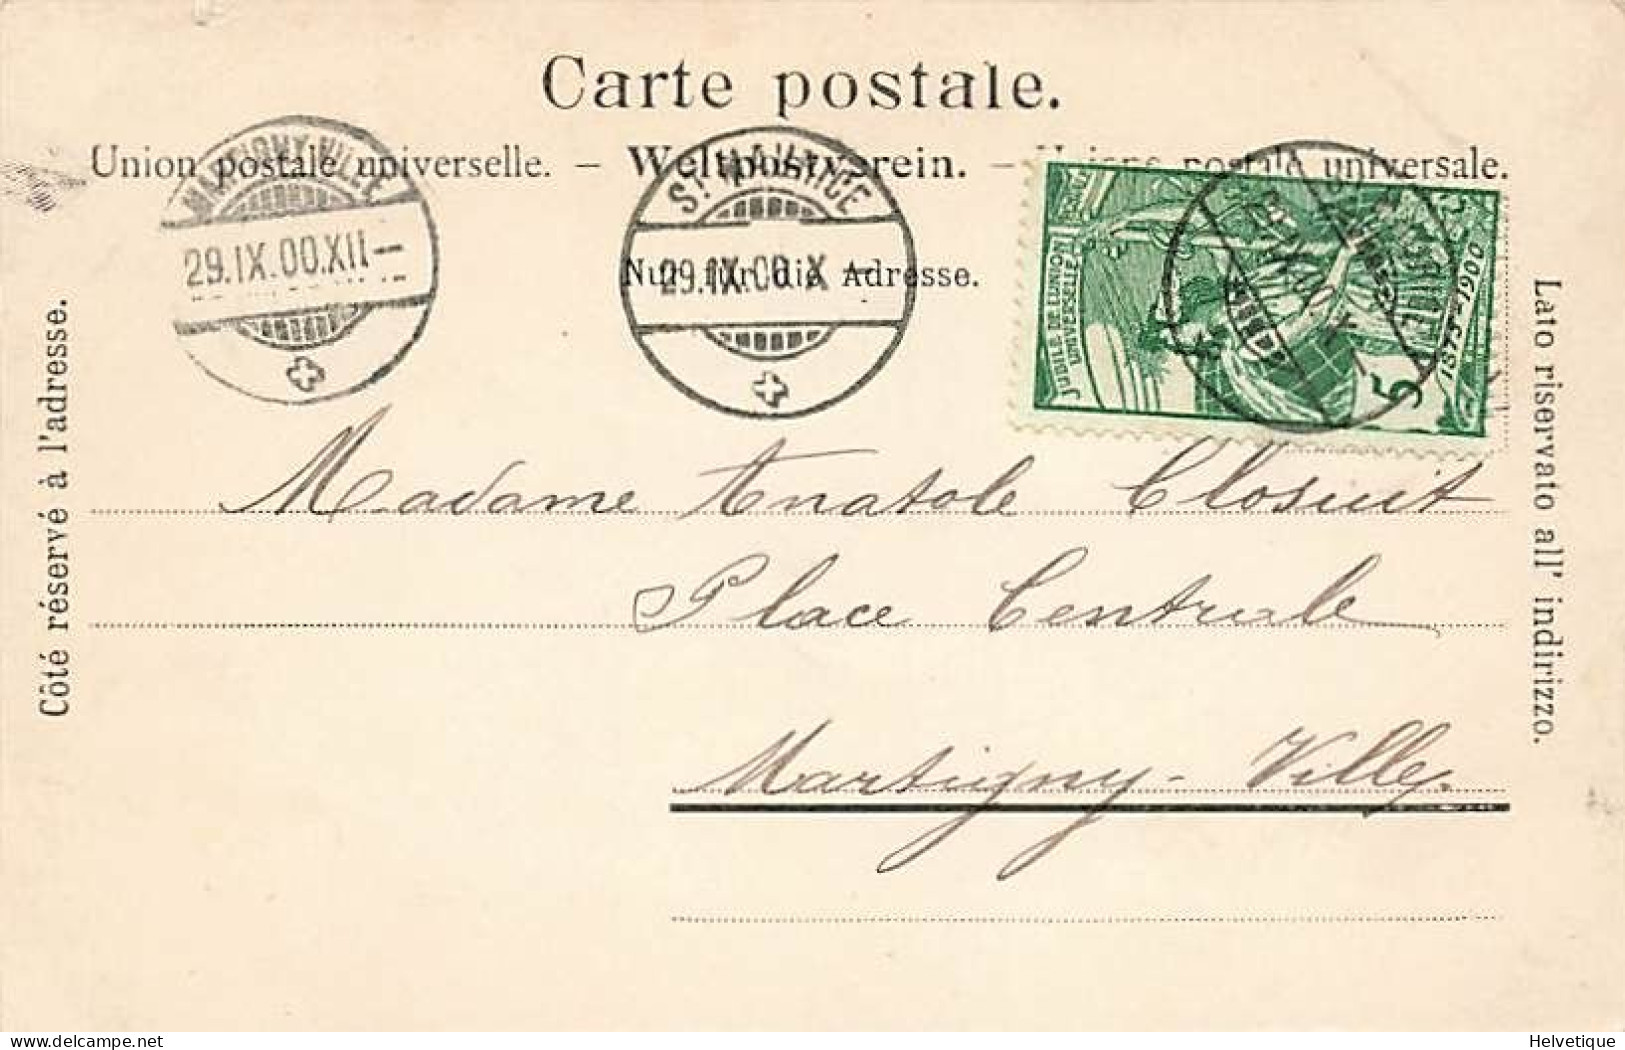 Carte postale.
Union postale universelle. – Weltpostverein. – Unione postale universale.
Nur für die Adresse.
MARTIGNY-VILLE
29.IX.00.XII–
ST MAURICE
29.IX.00. X –
ST MAURICE
29.IX.00. X –
JUBILÉ DE L'UNION
POSTALE
UNIVERSELLE
1875-1900
5
Côté réservé à l'adresse.
Lato riservato all' indirizzo.
Madame Anatole Closuit
Place Centrale
Martigny-Ville.
delcampe.net
Helvetique